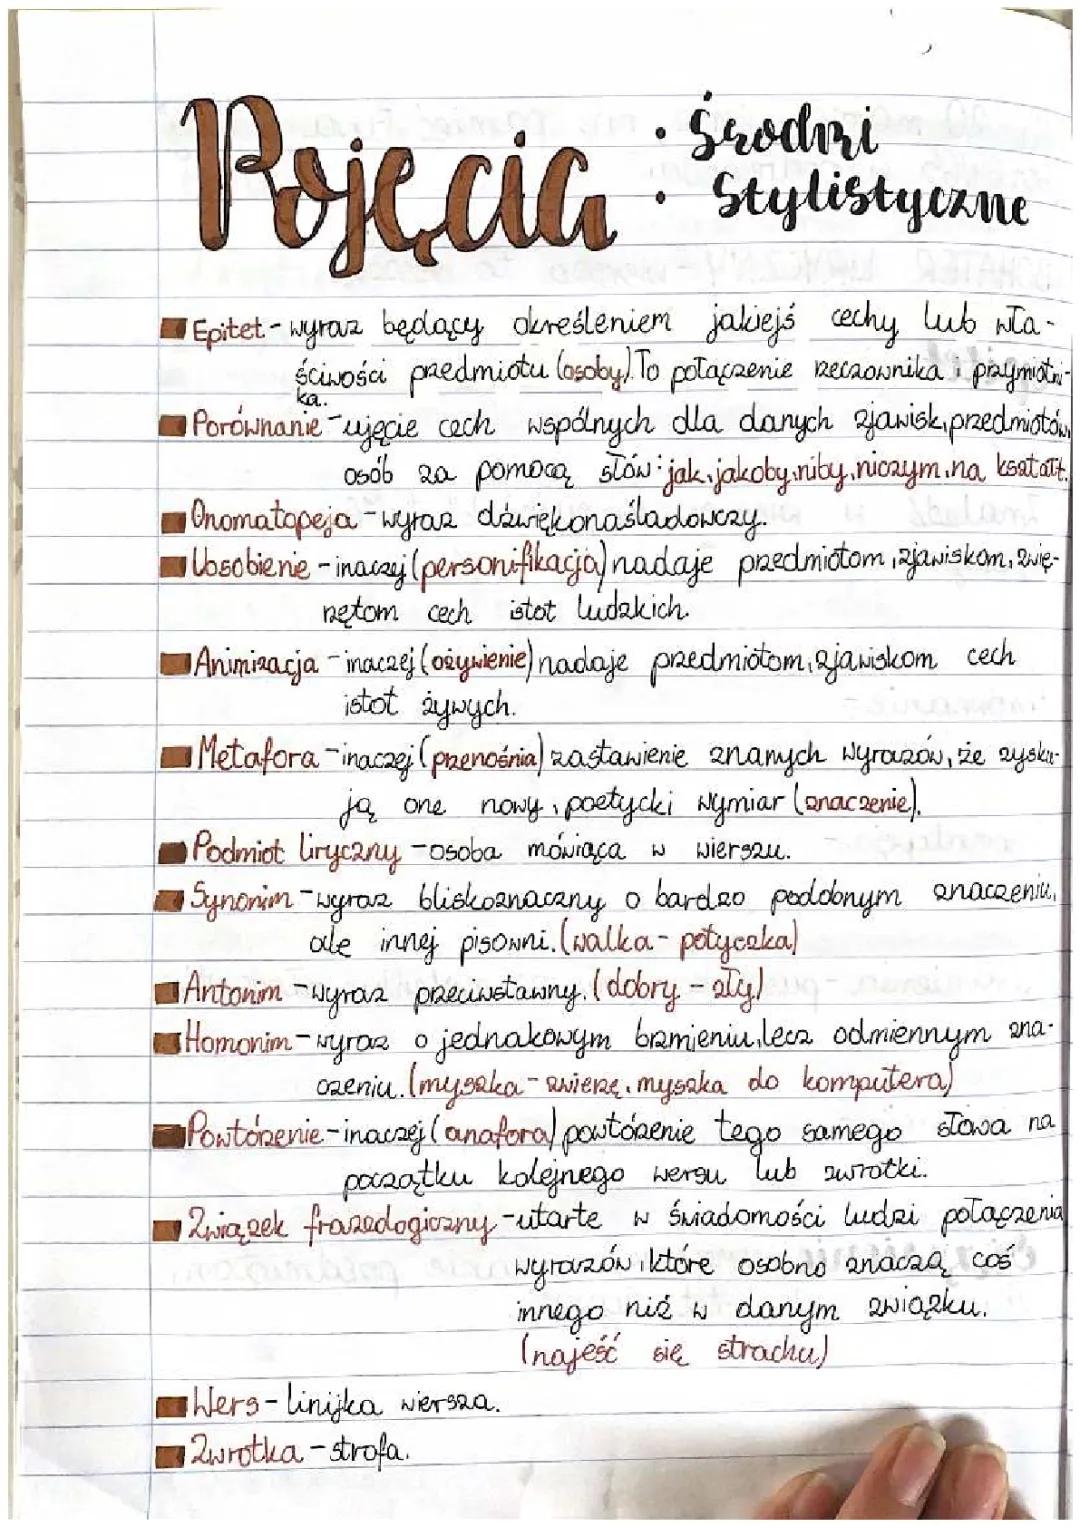 Pojęcia
• Środki
• Stylistyczne
Epitet - wyraz będący określeniem jakiejś cechy lub wła-
ściwości przedmiotu (osoby). To połączenie rzeczownika i przymiotni-
ka.
Porównanie - ujęcie cech wspólnych dla danych zjawisk, przedmiotów,
osób za pomocą słów: jak, jakoby, niby, niczym, na kształt.
Onomatopeja - wyraz dźwiękonaśladowczy.
Uosobienie - inaczej (personifikacja) nadaje przedmiotom, zjawiskom, zwie-
rzętom cech istot ludzkich.
Animizacja - inaczej (ożywienie) nadaje przedmiotom, zjawiskom cech
istot żywych.
Metafora - inaczej (przenośnia) zastawienie znanych wyrazów, że zysku-
ją one nowy, poetycki wymiar (znaczenie).
Podmiot liryczny - osoba mówiąca w wierszu.
Synonim - wyraz bliskoznaczny o bardzo podobnym znaczeniu,
ale innej pisowni. (walka - potyczka)
Antonim - wyraz przeciwstawny. (dobry - zły)
Homonim - wyraz o jednakowym brzmieniu, lecz odmiennym zna-
czeniu. (myszka - zwierzę, myszka do komputera)
Powtórzenie - inaczej (anafora) powtórzenie tego samego słowa na
początku kolejnego wersu lub zwrotki.
Związek frazeologiczny - utarte w świadomości ludzi połączenia
wyrazów, które osobno znaczą coś
innego niż w danym związku.
(najeść się strachu)
Wers - linijka wiersza.
Zwrotka - strofa.